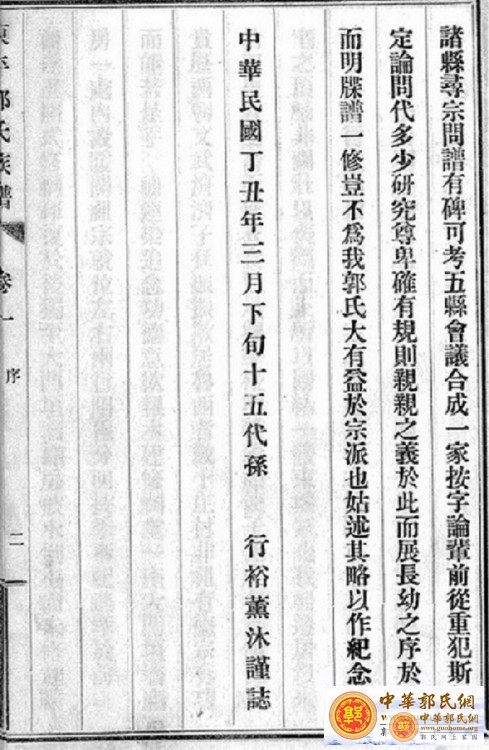 諸縣尋宗問譜有碑可考五縣會議合成一家按字論輩前從重犯斯
定論問代多少研究尊卑確有規則親親之義於此而展長幼之序於
而明牒譜一修豈不為我郭氏大有益於宗派也姑述其略以作紀念
中華民國丁丑年三月下旬十五代孫 行裕薰沐謹誌
郭氏族譜 卷一 序 二
中華郭氏網
www.guohome.org
郭氏網上家園